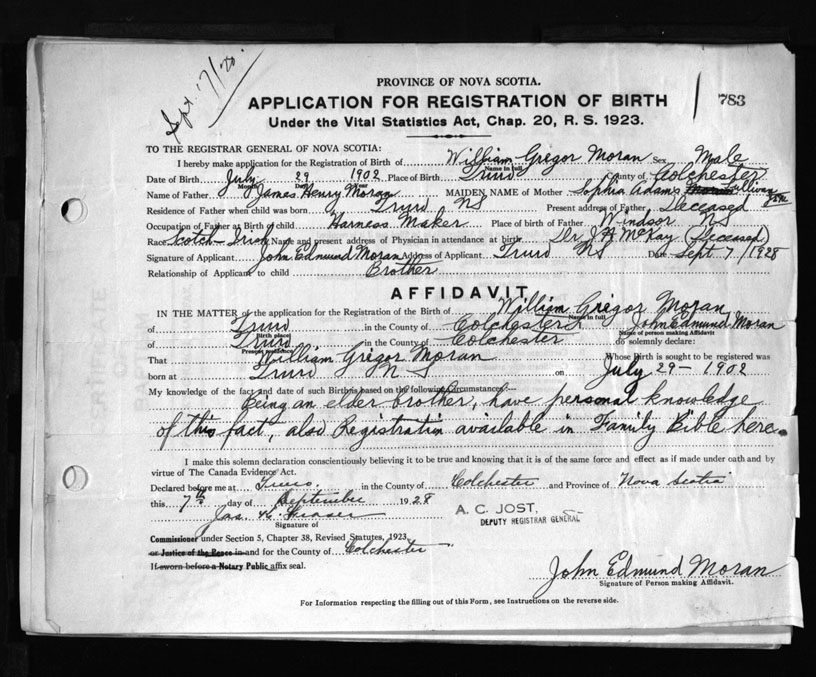 Sept 7/28
PROVINCE OF NOVA SCOTIA.
APPLICATION FOR REGISTRATION OF BIRTH
783
Under the Vital Statistics Act, Chap. 20, R. S. 1923.
TO THE REGISTRAR GENERAL OF NOVA SCOTIA:
I hereby make application for the Registration of Birth of William Gregor Moran Sex Male
Name in full
Date of Birth July 29 1902 Place of Birth Truro County of Colchester
Month Day Year
Name of Father James Henry Moran MAIDEN NAME of Mother Sophia Adams Sullivan
Residence of Father when child was born Truro NS Present address of Father Deceased
Occupation of Father at Birth of child Harness Maker Place of birth of Father Windsor NS
Race Scotch-Irish Name and present address of Physician in attendance at birth Dr. J H McKay (Deceased)
Signature of Applicant John Edmund Moran Address of Applicant Truro NS Date Sept 7/1928
Relationship of Applicant to child Brother
AFFIDAVIT
IN THE MATTER of the application for the Registration of Birth of William Gregor Moran
Name in full
of Truro in the County of Colchester I, John Edmund Moran
Birth place Name of person making Affidavit
of Truro in the County of Colchester do solemnly declare:
Present residence
That William Gregor Moran Whose Birth is sought to be registered was
born at Truro N S on July 29 - 1902
My knowledge of the fact and date of such Birth is based on the following circumstances
Being an elder brother, have personal knowledge
of this fact, also Registration available in Family Bible here.
I make this solemn declaration conscientiously believing it to be true and knowing that it is of the same force and effect as if made under oath and by
virtue of The Canada Evidence Act.
Declared before me at Truro. in the County of Colchester and Province of Nova Scotia
this 7th day of September 1928
A. C. JOST,
DEPUTY REGISTRAR GENERAL
Jas. Fraser
Signature of
Commissioner under Section 5, Chapter 38, Revised Statutes, 1923,
or Justice of the Peace in and for the County of Colchester
If sworn before a Notary Public affix seal.
John Edmund Moran
Signature of Person making Affidavit.
For Information respecting the filling out of this Form, see Instructions on the reverse side.